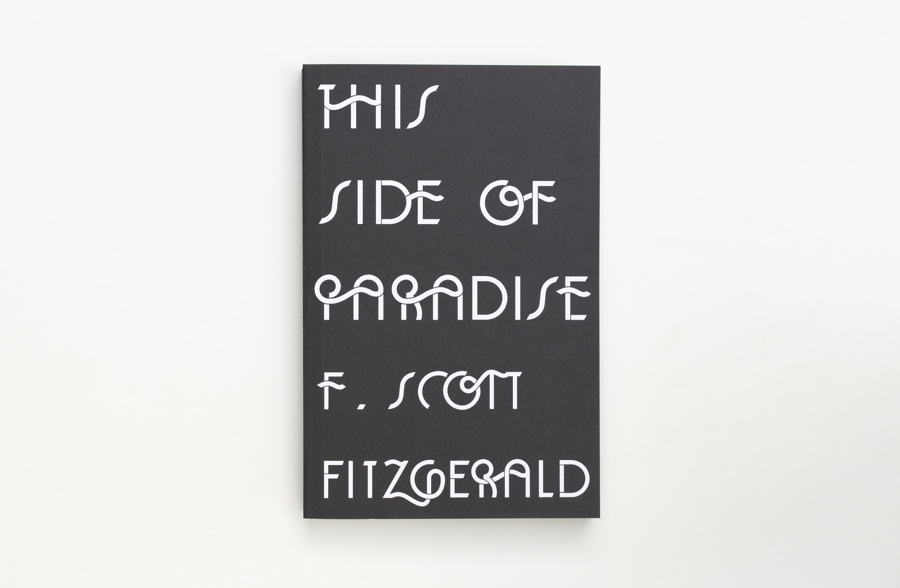 THIS
SIDE OF
PARADISE
F. SCOTT
FITZGERALD